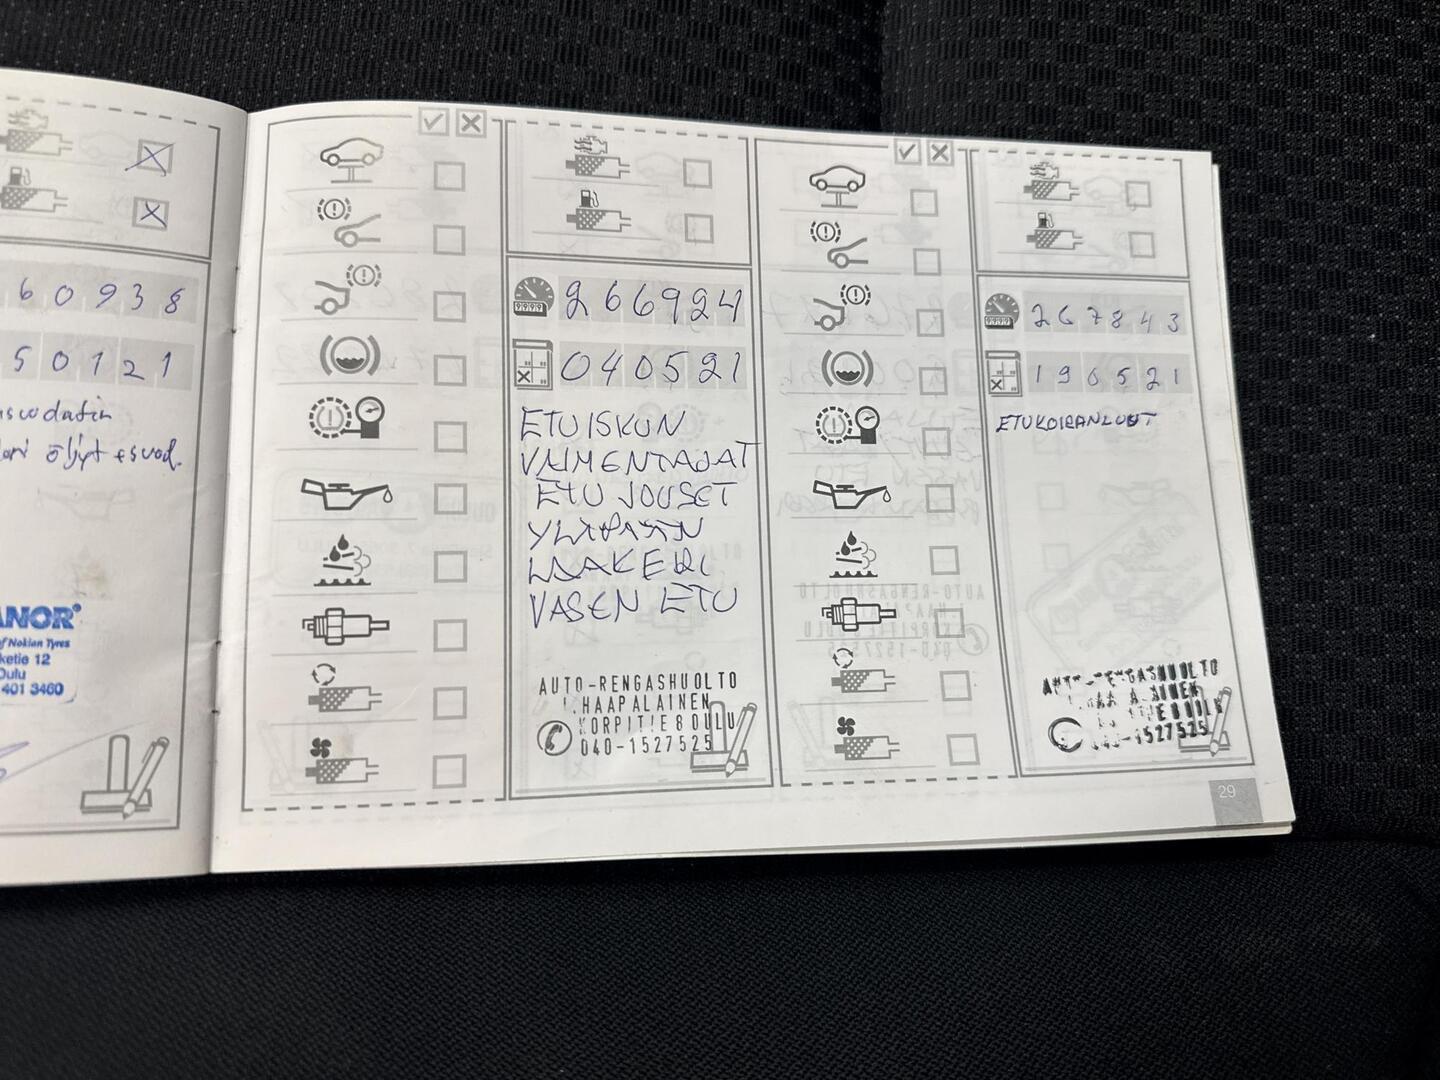 60938
50121
öljyt
ANOR
of Nokian Tyres
ketie 12
Oulu
401 3460
266924
040521
ETUISKUN
VAIMENTAJAT
ETU JOUSET
YLÄPÄÄN
LAAKERI
VASEN ETU
AUTO-RENGASHUOLTO
HAAPALAINEN
KORPITIE 8 OULU
040-1527525
267843
190521
ETUKOIRANLUUT
AUTO-RENGASHUOLTO
-1527525
29